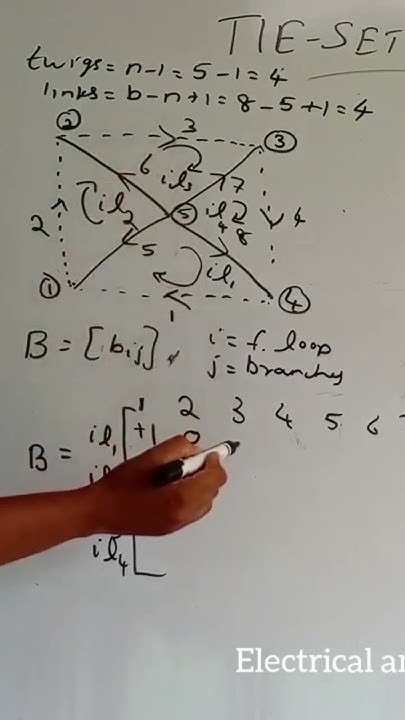 TIE-SET
twigs = n-1 = 5-1 = 4
links = b-n+1 = 8-5+1 = 4
② 3 ③
6 il3 7
2 il2 ⑤ il4 4
8
5 il1
① 1 ④
B = [bij] i = f. loop
j = branches
1 2 3 4 5 6
B = il1 +1 0
il4
Electrical an